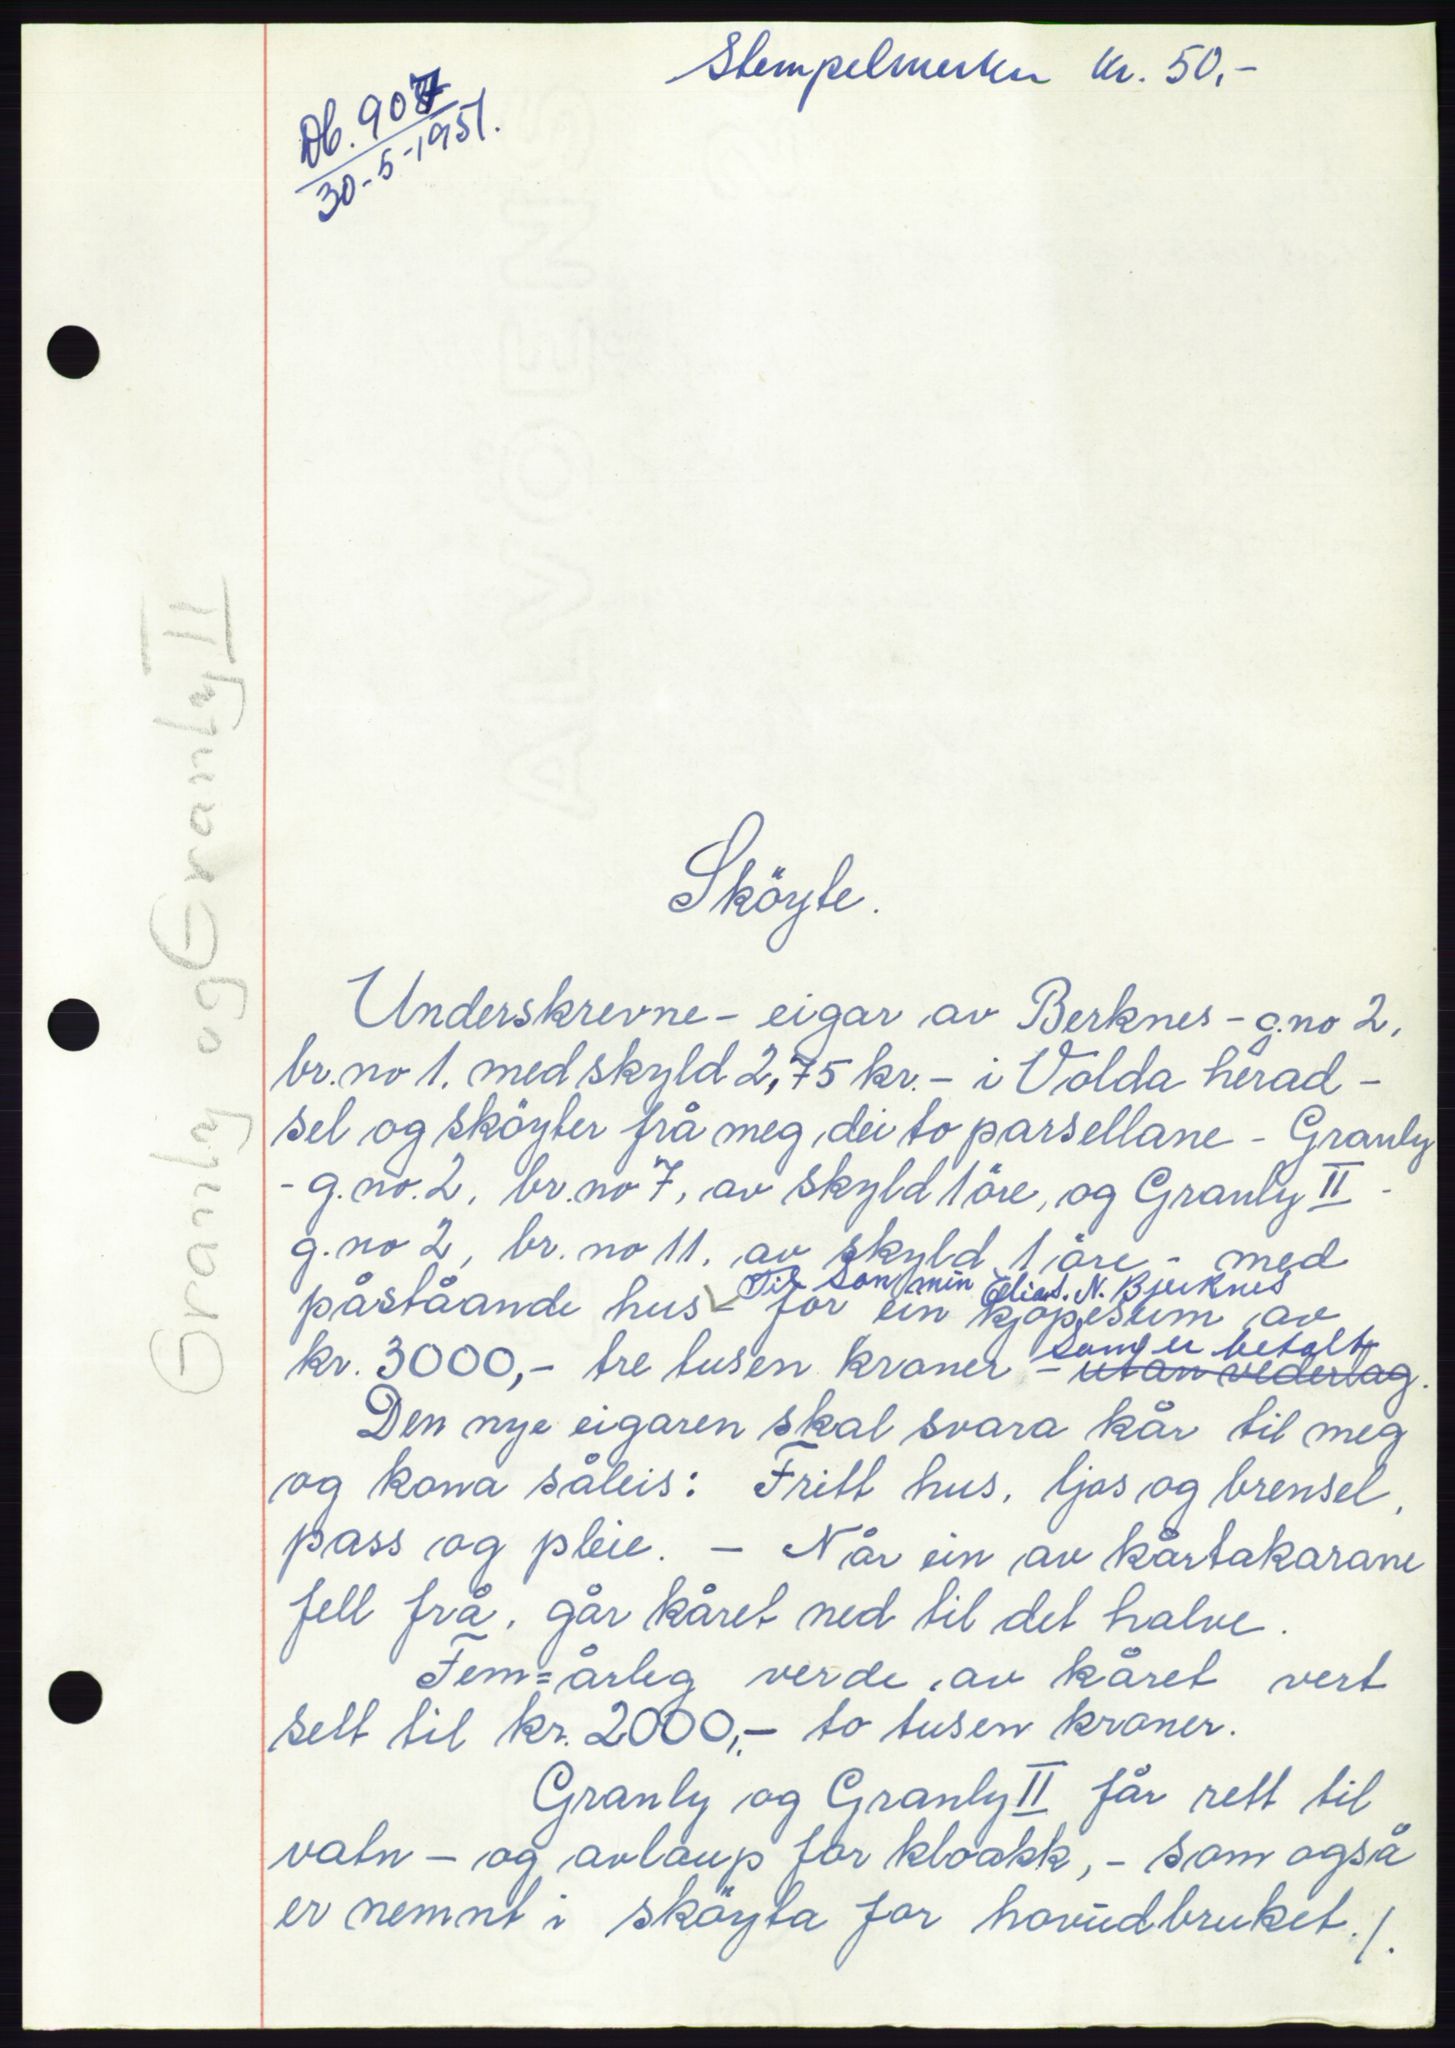 Stempelmerker kr. 50,-
Db. 907
30-5-1951.
Granly og Granly II
Sköyte.
Underskrevne - eigar av Berknes - g.no 2,
br. no 1. med skyld 2,75 kr. - i Volda herad -
sel og sköyter frå meg dei to parsellane - Granly
- g. no. 2, br. no 7, av skyld 1 öre, og Granly II -
g. no 2, br. no 11. av skyld 1 öre - med
Til son min Elias. N. Bjerknes
påståande hus - for ein kjöpesum av
som er betalt
kr. 3000,- tre tusen kroner - utan vederlag.
Den nye eigaren skal svara kår til meg
og kona såleis: Fritt hus, ljos og brensel,
pass og pleie. - Når ein av kårtakarane
fell frå, går kåret ned til det halve.
Fem=årleg verde av kåret vert
sett til kr. 2000,- to tusen kroner.
Granly og Granly II får rett til
vatn - og avlaup for kloakk, - som også
er nemnt i sköyta for hovudbruket./.